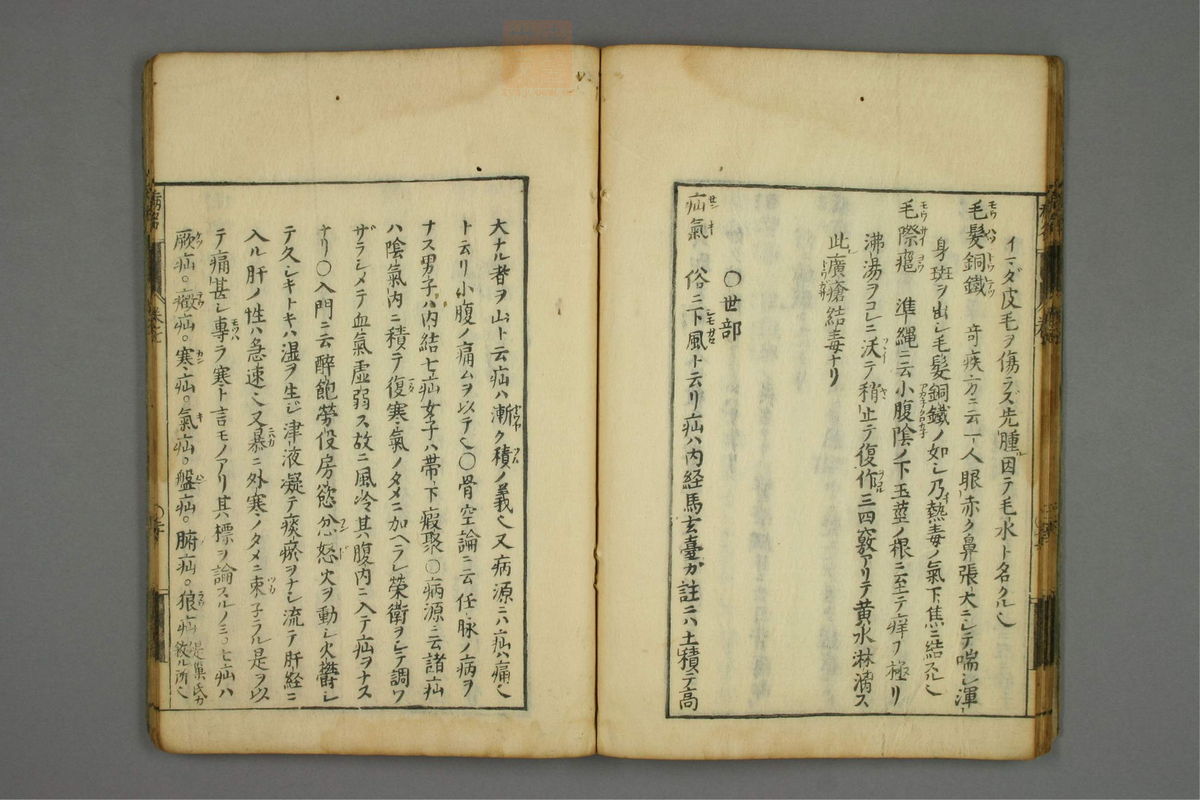 イマダ皮毛ヲ傷ラズ先腫因テ毛水ト名クル也
毛髪銅鐵 奇疾方ニ云一人眼赤ク鼻張大ニシテ喘シ渾
身斑ヲ出シ毛髪銅鐵ノ如シ乃熱毒ノ氣下焦ニ結スル也
毛際瘡 準縄ニ云小腹陰ノ下玉莖ノ根ニ至テ痒フ極リ
沸湯ヲコレニ沃テ稍止テ復作三四竅アリテ黄水淋漓ス
此廣瘡結毒ナリ
〇世部
疝氣 俗ニ下風ト云リ疝ハ内経馬玄臺ガ註ニハ土積テ高
大ナル者ヲ山ト云疝ハ漸ク積ノ義也又病源ニハ疝ハ痛也
ト云リ小腹ノ痛ムヲ以テ也〇骨空論ニ云任脉ノ病ヲ
ナス男子ハ内結七疝女子ハ帯下瘕聚〇病源ニ云諸疝
ハ陰氣内ニ積テ復寒氣ノタメニ加ヘラレ榮衛ヲシテ調ワ
ザラシメテ血氣虚弱ス故ニ風冷其腹内ニ入テ疝ヲナス
ナリ〇入門ニ云醉飽勞役房慾忿怒火ヲ動シ火欝シ
テ久シキトキハ湿ヲ生ジ津液凝テ痰瘀ヲナシ流テ肝経ニ
入ル肝ノ性ハ急速也又暴ニ外寒ノタメニ束子ラル是ヲ以
テ痛甚シ專ラ寒ト言モノアリ其標ヲ論スルノミ〇七疝ハ
厥疝。癥疝。寒疝。氣疝。盤疝。腑疝。狼疝 是巣氏カ叙ル所也